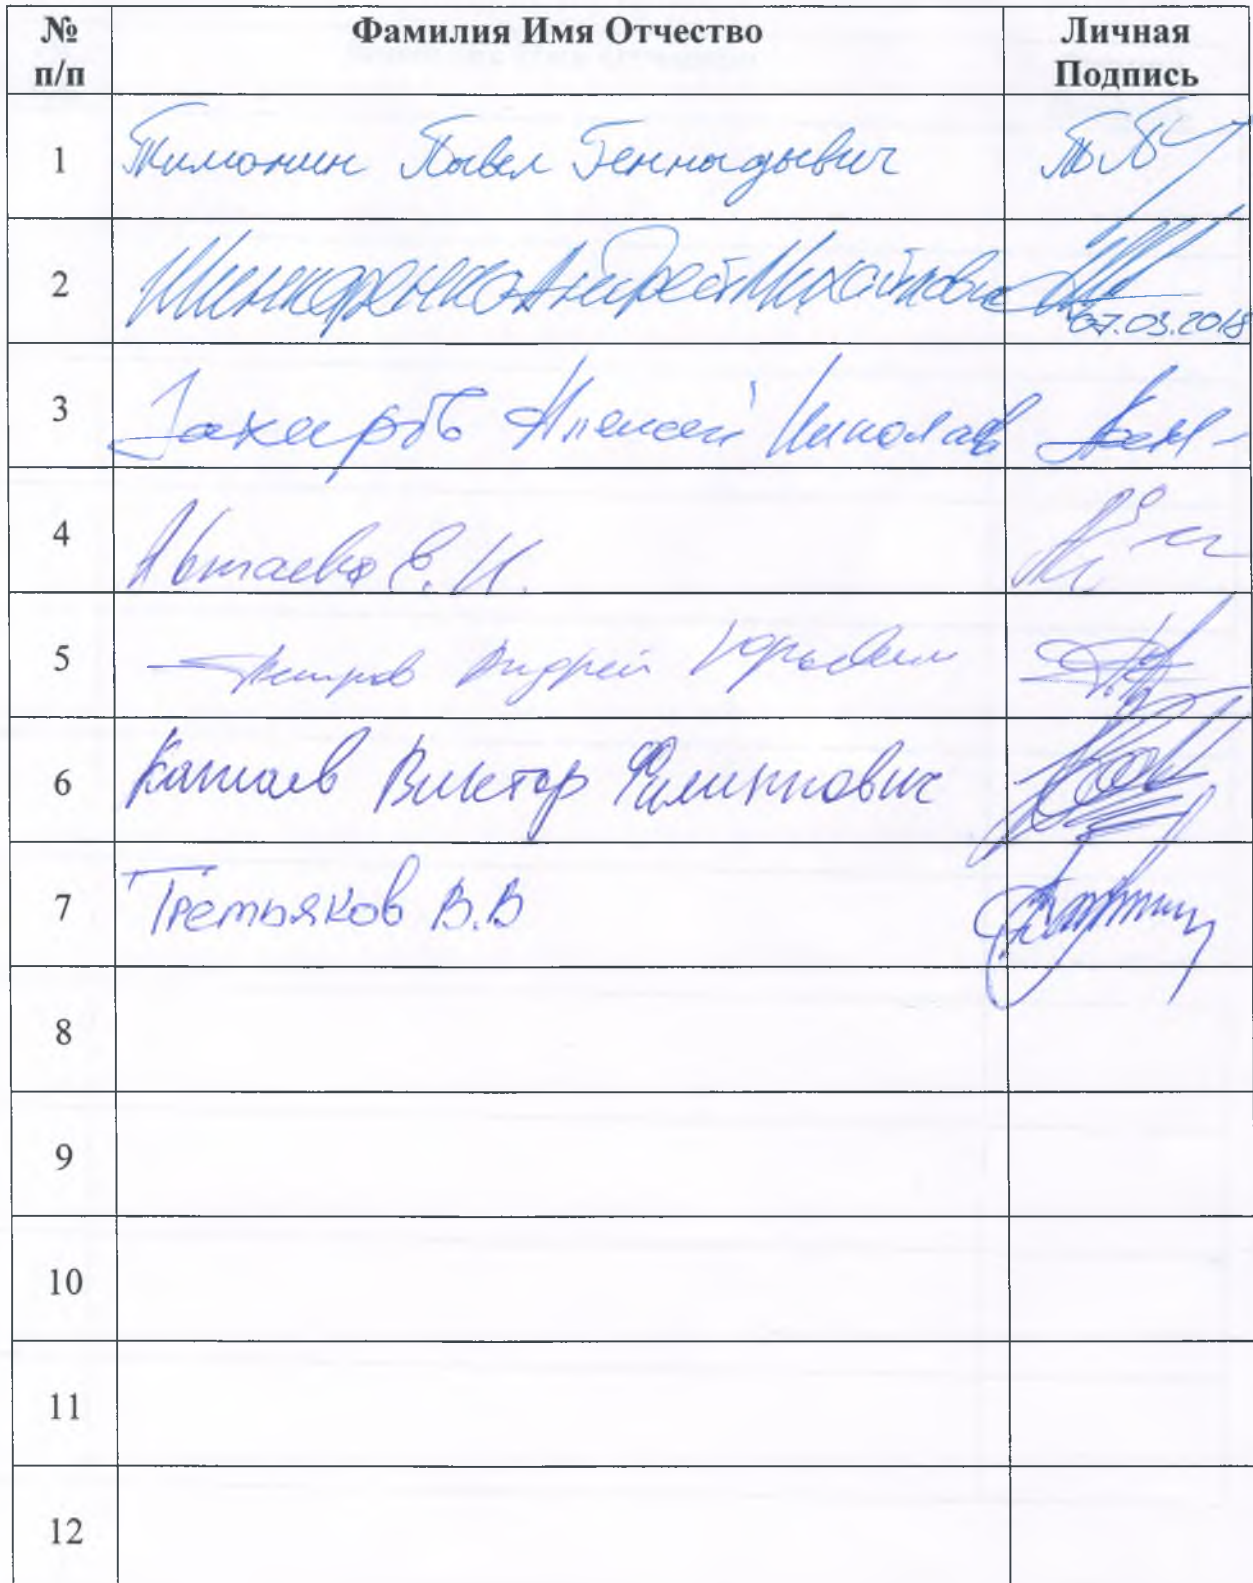 № п/п Фамилия Имя Отчество Личная Подпись
1 Тимонин Павел Геннадьевич
2 Шинкаренко Андрей Михайлович 07.03.2018
3 Захаров Алексей Николаев
4 Автаева Е.И.
5 Петров Андрей Юрьевич
6 Катаев Виктор Филиппович
7 Третьяков В.В
8
9
10
11
12